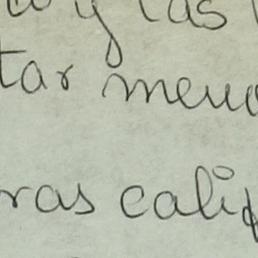 y las
tar meno
ras calif